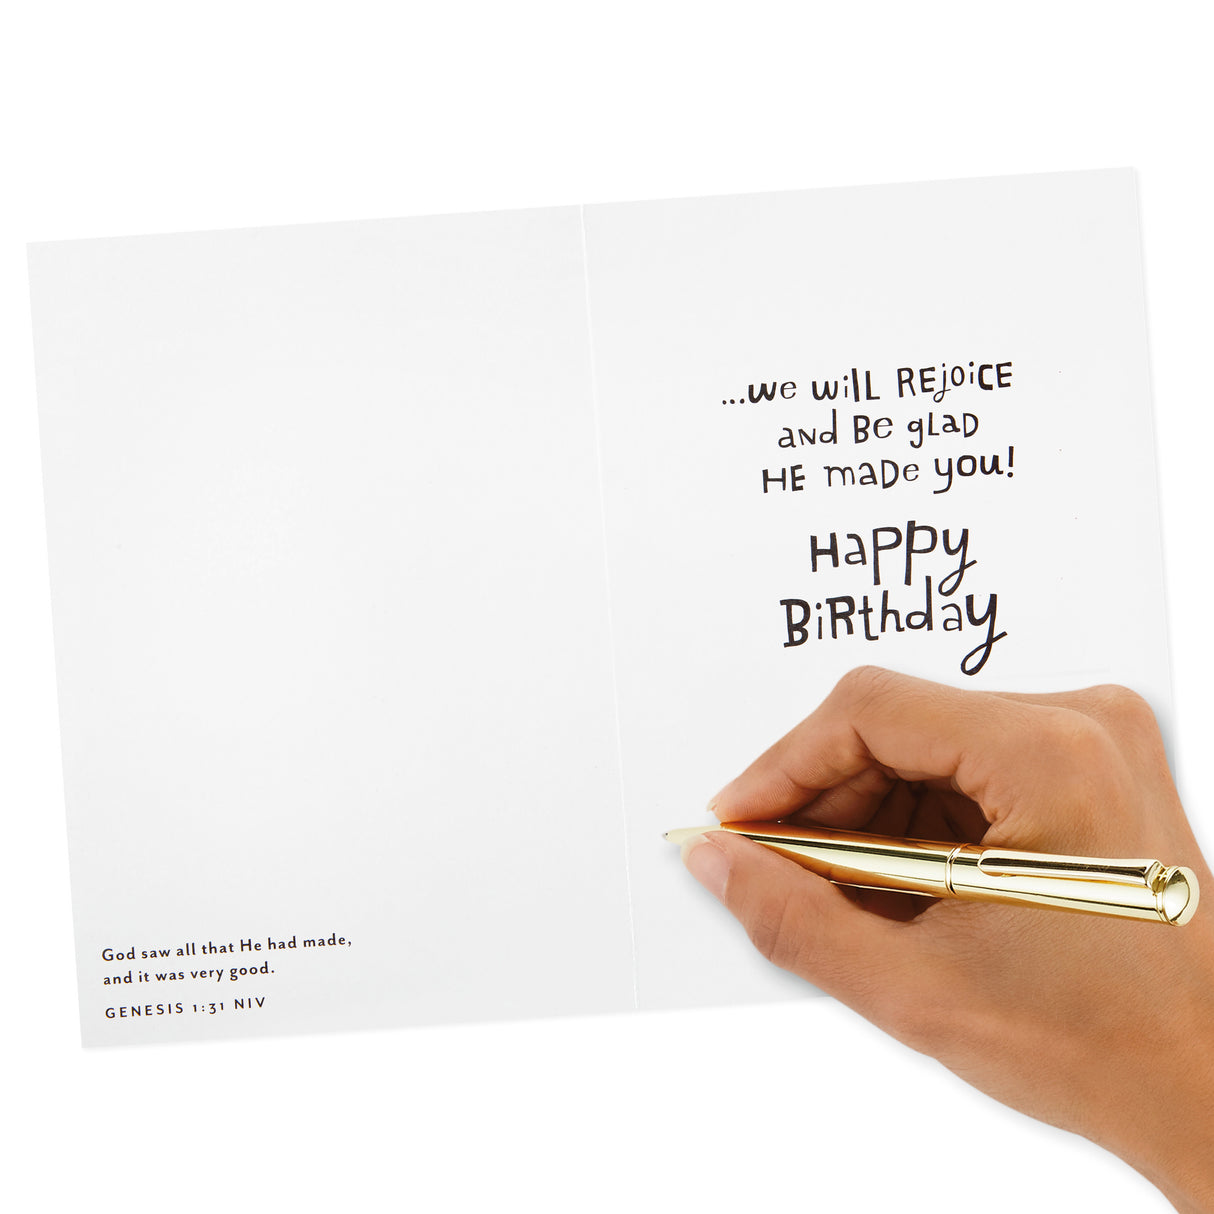 God saw all that He had made,
and it was very good.
GENESIS 1:31 NIV
...we will REjoicE
and Be gLaD
HE maDe you!
Happy
BiRthday